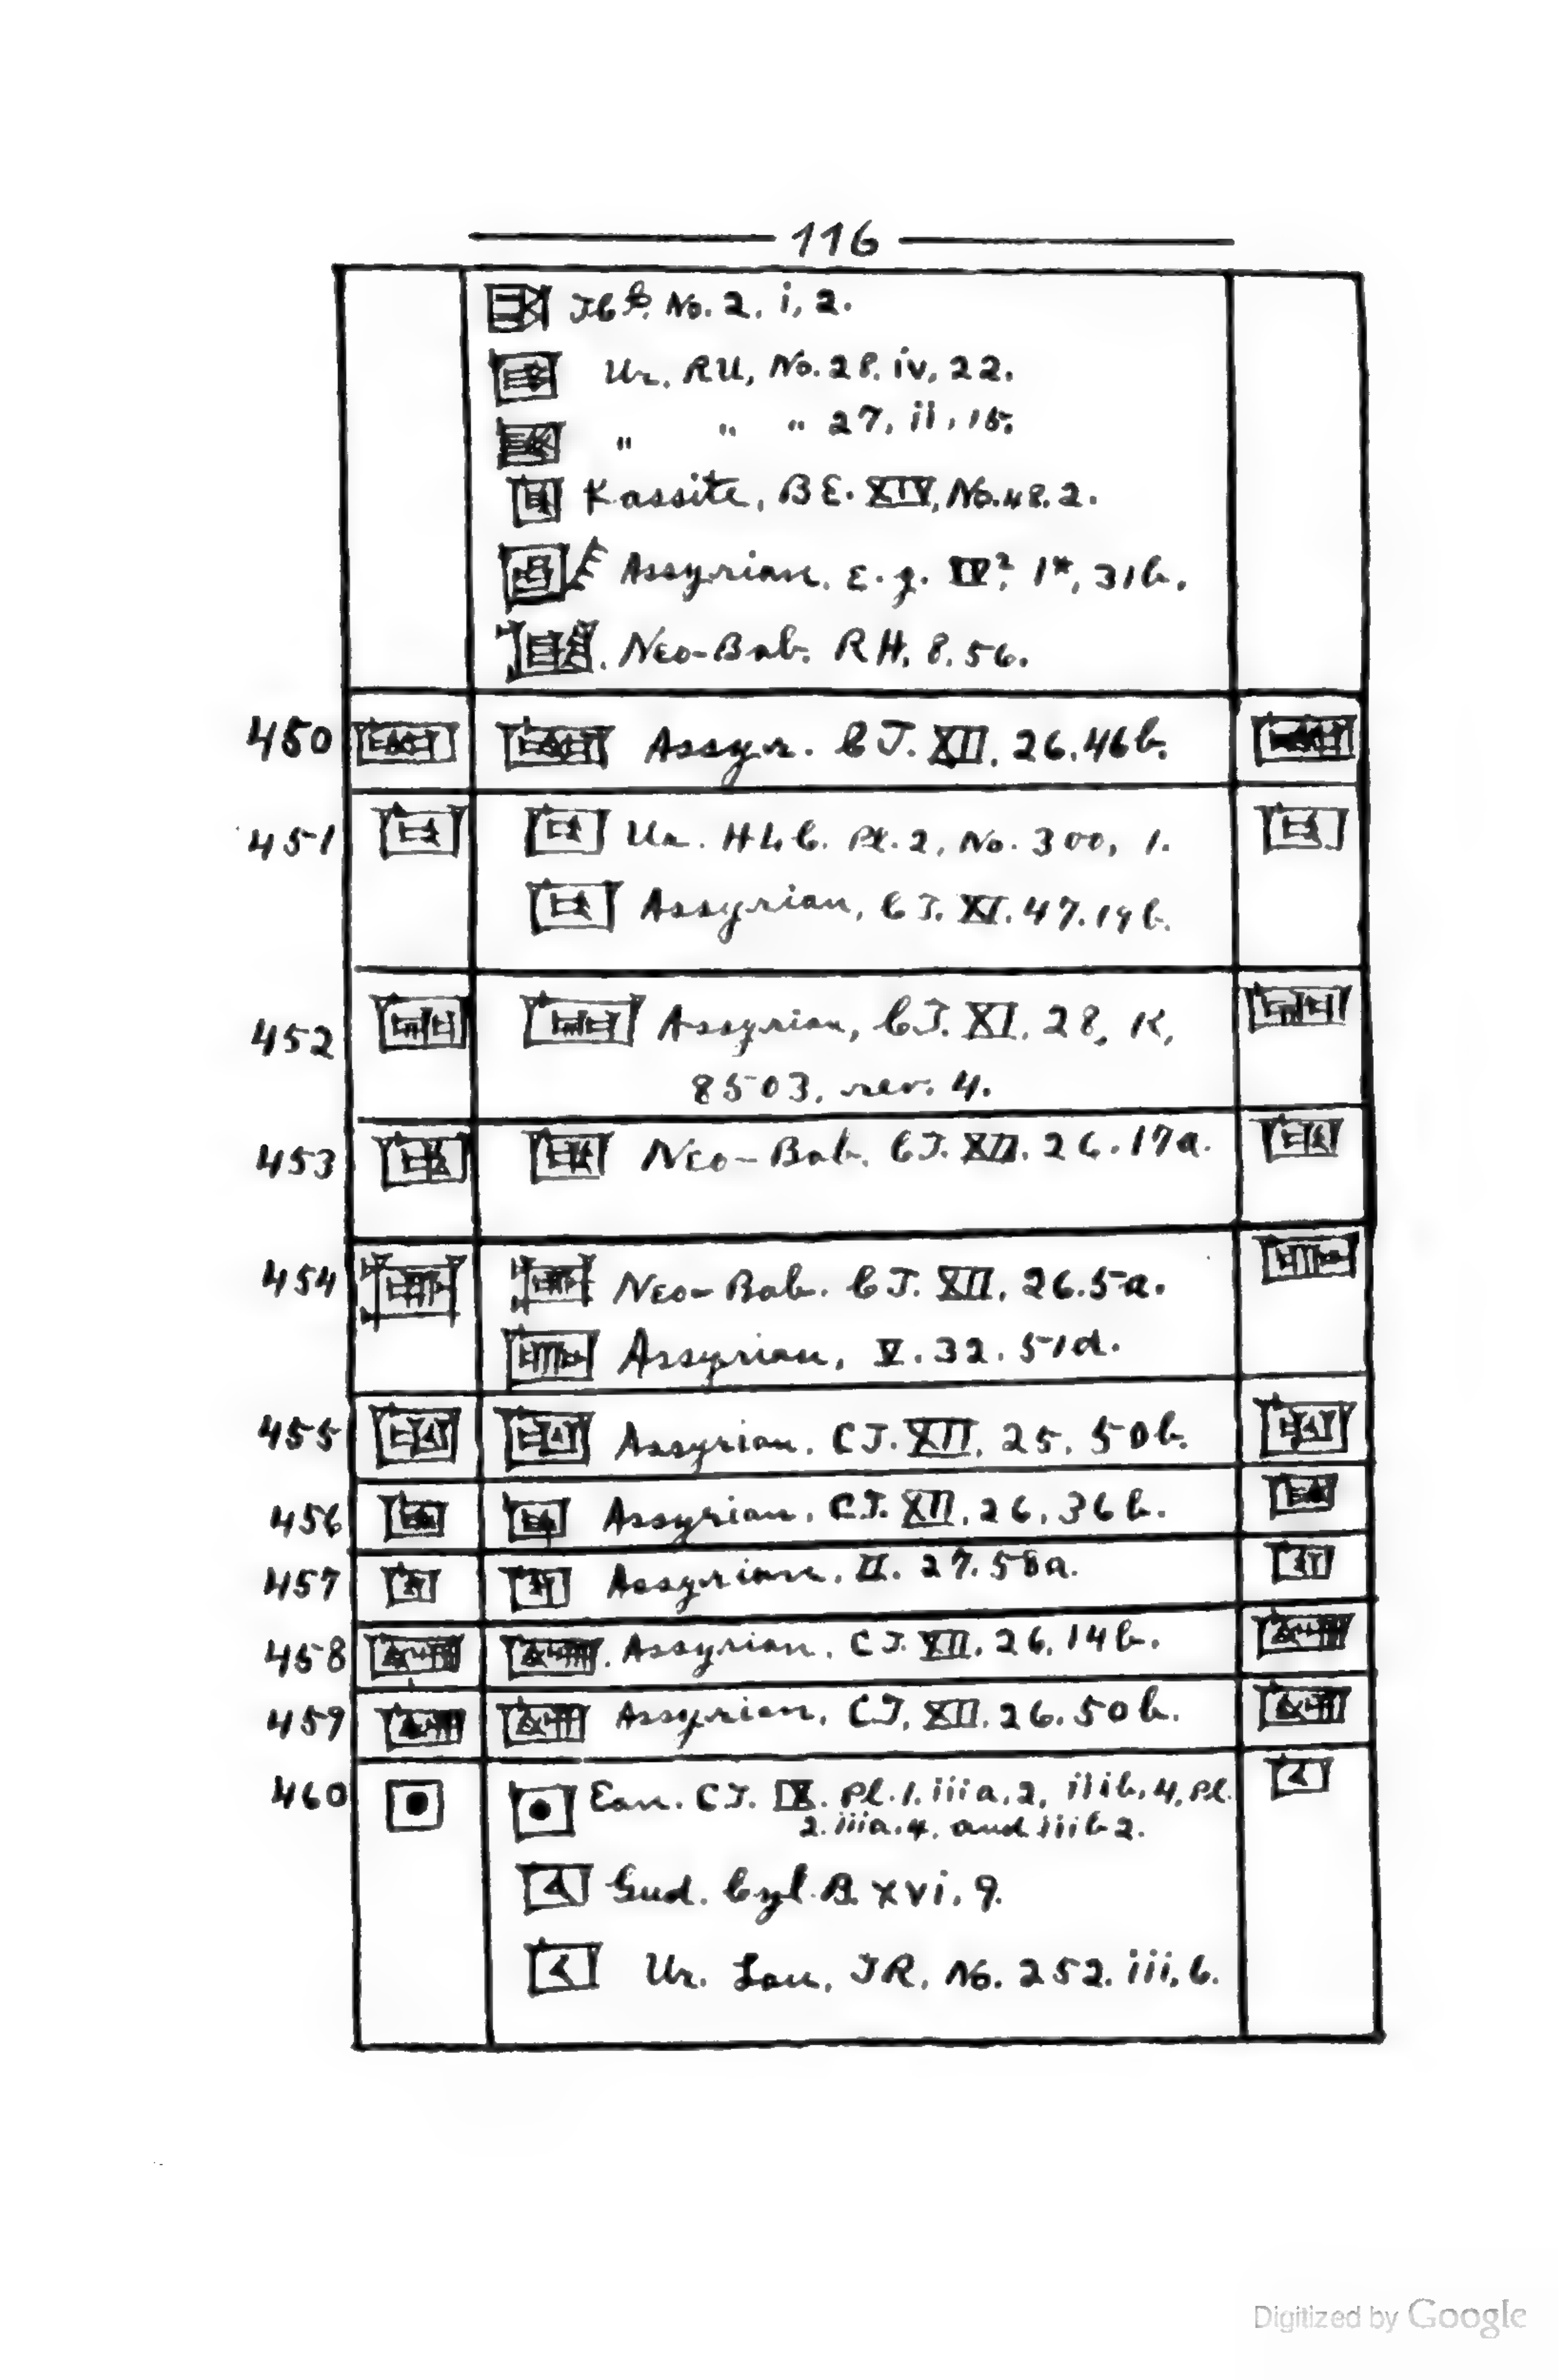 116
No. 2, i, 2.
Ur. RU, No. 28. iv, 22.
" " " 27, ii, 15.
Kassite, BE. XIV, No. 48. 2.
Assyrian. E. g. IV² 1*, 31b.
Neo-Bab. RH. 8. 56.
450 Assyr. CT. XII. 26. 46b.
451 Ur. HLC. Pl. 2, No. 300, 1.
Assyrian, CT. XI. 47. 19b.
452 Assyrian, CT. XI. 28, K,
8503, rev. 4.
453 Neo-Bab. CT. XII. 26. 17a.
454 Neo-Bab. CT. XII. 26. 5a.
Assyrian, V. 32. 51d.
455 Assyrian. CT. XII. 25. 50b.
456 Assyrian. CT. XII. 26. 36b.
457 Assyrian. II. 27. 58a.
458 Assyrian. CT. XII. 26. 14b.
459 Assyrian. CT. XII. 26. 50b.
460 Ean. CT. IX. Pl. 1. iiia. 2, iiib. 4, Pl.
2. iiia. 4. and iiib 2.
Gud. Cyl. B. xvi. 9.
Ur. Lau, TR, No. 252. iii, 6.
Digitized by Google